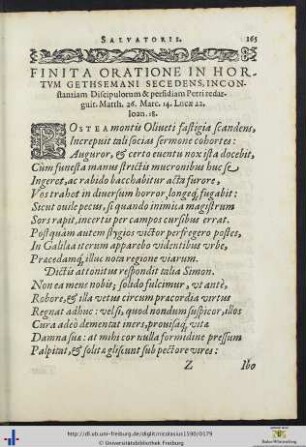 SALVATORIS. 165
FINITA ORATIONE IN HOR-
TVM GETHSEMANI SECEDENS, INCON-
stantiam Discipulorum & perfidiam Petri redar-
guit. Matth. 26. Marc. 14. Lucæ 22.
Ioan. 18.
POSTEA montis Oliueti fastigia scandens,
Increpuit tali socias sermone cohortes:
Auguror, & certo euentu nox ista docebit,
Cùm funesta manus strictis mucronibus huc se
Ingeret, ac rabido bacchabitur acta furore,
Vos trahet in diuersum horror, longeq́; fugabit:
Sicut ouile pecus, si quando inimica magistrum
Sors rapit, incertis per campos cursibus errat.
Postquàm autem stygios victor perfregero postes,
In Galilæa iterum apparebo videntibus vrbe,
Præcedamq́; illuc nota regione viarum.
Dictis attonitus respondit talia Simon.
Non ea mens nobis, solido fulcimur, vt antè,
Robore, & illa vetus circum præcordia virtus
Regnat adhuc: vel si, quod nondum suspicor, illos
Cura adeò dementat iners, prouisaq́; vitæ
Damna suæ: at mihi cor nulla formidine pressum
Palpitat, & solitæ gliscunt sub pectore vires:
Z Ibo
http://dl.ub.uni-freiburg.de/diglit/nicolausius1590/0179
Baden-Württemberg